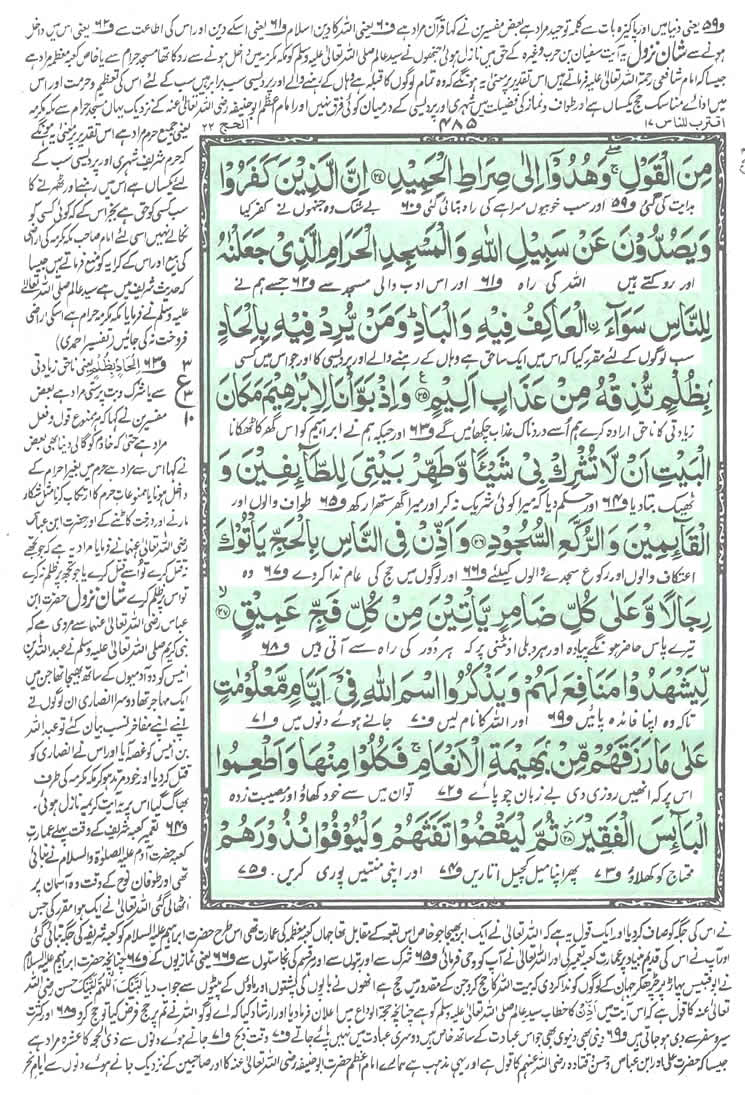 و۵۹ یعنی دنیا میں اور پاکیزہ بات سے کلمہ توحید مراد ہے بعض مفسرین نے کہا قرآن مراد ہے و۶۰ یعنی اللہ کا دین اسلام و۶۱ یعنی اسکے دین اور اس کی اطاعت سے و۶۲ یعنی اس میں داخل
ہونے سے شان نزول یہ آیت سفیان بن حرب وغیرہ کے حق میں نازل ہوئی جنھوں نے سید عالم صلی اللہ تعالیٰ علیہ وسلم کو مکہ مکرمہ میں داخل ہونے سے روکا تھا مسجد حرام سے یا خاص کعبہ معظمہ مراد ہے
جیسا کہ امام شافعی رحمۃ اللہ تعالیٰ علیہ فرماتے ہیں اس تقدیر پر معنی یہ ہونگے کہ وہ تمام لوگوں کا قبلہ ہے وہاں کے رہنے والے اور پردیسی سب برابر ہیں سب کے لئے اس کی تعظیم و حرمت اور اس
میں ادائے مناسک حج یکساں ہے اور طواف و نماز کی فضیلت میں شہری اور پردیسی کے درمیان کوئی فرق نہیں اور امام اعظم ابوحنیفہ رضی اللہ تعالیٰ عنہ کے نزدیک یہاں مسجد حرام سے مکہ مکرمہ
اقترب للناس ۱۷
۴۸۵
الحج ۲۲
مِنَ الْقَوْلِ ۖ وَهُدُوْٓا اِلٰى صِرَاطِ الْحَمِيْدِ ﴿۲۴﴾ اِنَّ الَّذِيْنَ كَفَرُوْا
ہدایت کی گئی و۵۹ اور سب خوبیوں سراہے کی راہ بتائی گئی و۶۰ بے شک وہ جنہوں نے کفر کیا
وَيَصُدُّوْنَ عَنْ سَبِيْلِ اللّٰهِ وَالْمَسْجِدِ الْحَرَامِ الَّذِيْ جَعَلْنٰهُ
اور روکتے ہیں اللہ کی راہ و۶۱ اور اس ادب والی مسجد سے و۶۲ جسے ہم نے
لِلنَّاسِ سَوَآءَ ۨ الْعَاكِفُ فِيْهِ وَالْبَادِ ؕ وَمَنْ يُّرِدْ فِيْهِ بِاِلْحَادٍۭ
سب لوگوں کے لئے مقرر کیا کہ اس میں ایک سا حق ہے وہاں کے رہنے والے اور پردیسی کا اور جو اس میں کسی
بِظُلْمٍ نُّذِقْهُ مِنْ عَذَابٍ اَلِيْمٍ ﴿۲۵﴾ وَاِذْ بَوَّاْنَا لِاِبْرٰهِيْمَ مَكَانَ
زیادتی کا ناحق ارادہ کرے ہم اُسے دردناک عذاب چکھائیں گے و۶۳ اور جبکہ ہم نے ابراہیم کو اس گھر کا ٹھکانا
الْبَيْتِ اَنْ لَّا تُشْرِكْ بِيْ شَيْئًا وَّطَهِّرْ بَيْتِيَ لِلطَّآئِفِيْنَ وَ
ٹھیک بتا دیا و۶۴ اور حکم دیا کہ میرا کوئی شریک نہ کر اور میرا گھر ستھرا رکھ و۶۵ طواف والوں اور
الْقَآئِمِيْنَ وَالرُّكَّعِ السُّجُوْدِ ﴿۲۶﴾ وَاَذِّنْ فِي النَّاسِ بِالْحَجِّ يَاْتُوْكَ
اعتکاف والوں اور رکوع سجدے والوں کیلئے و۶۶ اور لوگوں میں حج کی عام ندا کر دے و۶۷ وہ
رِجَالًا وَّعَلٰى كُلِّ ضَامِرٍ يَّاْتِيْنَ مِنْ كُلِّ فَجٍّ عَمِيْقٍ ﴿۲۷﴾
تیرے پاس حاضر ہونگے پیادہ اور ہر دبلی اونٹنی پر کہ ہر دور کی راہ سے آتی ہیں و۶۸
لِّيَشْهَدُوْا مَنَافِعَ لَهُمْ وَيَذْكُرُوا اسْمَ اللّٰهِ فِيْٓ اَيَّامٍ مَّعْلُوْمٰتٍ
تاکہ وہ اپنا فائدہ پائیں و۶۹ اور اللہ کا نام لیں و۷۰ جانے ہوئے دنوں میں و۷۱
عَلٰى مَا رَزَقَهُمْ مِّنْۢ بَهِيْمَةِ الْاَنْعَامِ ۚ فَكُلُوْا مِنْهَا وَاَطْعِمُوا
اس پر کہ انھیں روزی دی بے زبان چوپائے و۷۲ تو ان میں سے خود کھاؤ اور مصیبت زدہ
الْبَآئِسَ الْفَقِيْرَ ﴿۲۸﴾ ثُمَّ لْيَقْضُوْا تَفَثَهُمْ وَلْيُوْفُوْا نُذُوْرَهُمْ
محتاج کو کھلاؤ و۷۳ پھر اپنا میل کچیل اتاریں و۷۴ اور اپنی منتیں پوری کریں و۷۵
یعنی جمیع حرم مراد ہے اس تقدیر پر معنی یہ ہونگے
کہ حرم شریف شہری اور پردیسی سب کے
لئے یکساں ہے اس میں رہنے اور ٹھہرنے کا
سب کسی کو حق ہے بجز اس کے کہ کوئی کسی کو
نکالے نہیں اسی لئے امام صاحب مکہ مکرمہ کی اراضی
کی بیع اور اس کے کرایہ کو منع فرماتے ہیں جیسا
کہ حدیث شریف میں ہے سید عالم صلی اللہ تعالیٰ
علیہ وسلم نے فرمایا مکہ مکرمہ حرام ہے اسکی اراضی
فروخت نہ کی جائیں (تفسیر احمدی)
و۶۳ اِلْحَادٍۭ بِظُلْمٍ یعنی ناحق زیادتی
سے یا شرک و بت پرستی مراد ہے بعض
مفسرین نے کہا کہ ہر ممنوع قول و فعل
مراد ہے حتی کہ خادم کو گالی دینا بھی بعض
نے کہا اس سے مراد ہے حرم میں بغیر احرام کے
داخل ہونا یا ممنوعات حرم کا ارتکاب کرنا مثل شکار
مارنے اور درخت کاٹنے کے اور حضرت ابن عباس
رضی اللہ تعالیٰ عنہما نے فرمایا مراد یہ ہے کہ جو تجھے
نہ قتل کرے تو اُسے قتل کرے یا جو تجھ پر ظلم نہ کرے
تو اس پر ظلم کرے شان نزول حضرت ابن
عباس رضی اللہ تعالیٰ عنہما سے مروی ہے کہ
نبی کریم صلی اللہ تعالیٰ علیہ وسلم نے عبداللہ بن
انیس کو دو آدمیوں کے ساتھ بھیجا تھا جن میں
ایک مہاجر تھا دوسرا انصاری ان لوگوں نے
اپنے اپنے مفاخر نسب بیان کئے تو عبداللہ
بن انیس کو غصہ آیا اور اس نے انصاری کو
قتل کر دیا اور خود مرتد ہو کر مکہ مکرمہ کی طرف
بھاگ گیا اس پر یہ آیت کریمہ نازل ہوئی۔
و۶۴ تعمیر کعبہ شریف کے وقت پہلے عمارت
کعبہ حضرت آدم علیہ الصلوۃ والسلام نے بنائی
تھی اور طوفان نوح کے وقت وہ آسمان پر
اٹھا لی گئی اللہ تعالیٰ نے ایک ہوا مقرر کی جس
۳
ع
۳
۱۰
نے اس کی جگہ کو صاف کر دیا اور ایک قول یہ ہے کہ اللہ تعالیٰ نے ایک ابر بھیجا جو خاص اس بقعہ کے مقابل تھا جہاں کعبہ معظمہ کی عمارت تھی اس طرح حضرت ابراہیم علیہ السلام کو کعبہ شریف کی جگہ بتائی گئی
اور آپ نے اس کی قدیم بنیاد پر عمارت کعبہ تعمیر کی اور اللہ تعالیٰ نے آپ کو وحی فرمائی و۶۵ شرک سے اور بتوں سے اور ہر قسم کی نجاستوں سے و۶۶ یعنی نمازیوں کے و۶۷ چنانچہ حضرت ابراہیم علیہ السلام
نے ابوقبیس پہاڑ پر چڑھ کر جہان کے لوگوں کو ندا کر دی کہ بیت اللہ کا حج کرو جن کے مقدور میں حج ہے انھوں نے باپوں کی پشتوں اور ماؤں کے پیٹوں سے جواب دیا لَبَّيْكَ اَللّٰهُمَّ لَبَّيْكَ حسن رضی اللہ
تعالیٰ عنہ کا قول ہے کہ اس آیت میں اَذِّنْ کا خطاب سید عالم صلی اللہ تعالیٰ علیہ وسلم کو ہے چنانچہ حجۃ الوداع میں اعلان فرما دیا اور ارشاد کیا کہ اے لوگو اللہ نے تم پر حج فرض کیا تو حج کرو و۶۸ اور کثرت
سیر و سفر سے دبلی ہو جاتی ہیں و۶۹ دینی بھی دنیوی بھی جو اس عبادت کے ساتھ خاص ہیں دوسری عبادت میں نہیں پائے جاتے و۷۰ وقت ذبح و۷۱ جانے ہوئے دنوں سے ذی الحجہ کا عشرہ مراد ہے
جیسا کہ حضرت علی اور ابن عباس و حسن و قتادہ رضی اللہ عنہم کا قول ہے اور یہی مذہب ہے ہمارے امام اعظم حضرت ابوحنیفہ رضی اللہ تعالیٰ عنہ کا اور صاحبین کے نزدیک جانے ہوئے دنوں سے ایام نحر